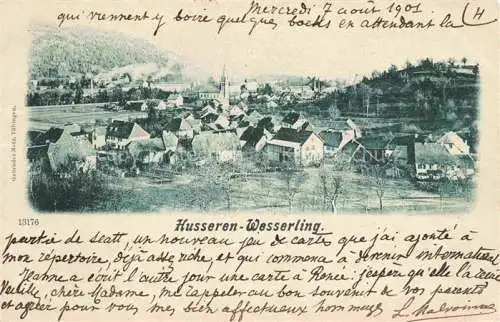 Mercredi 7 août 1901 (4
qui viennent y boire quelque bocks en attendant la
Gebrüder Metz, Tübingen.
13176
Husseren-Wesserling.
partie de scatt, un nouveau jeu de cartes que j'ai ajouté à
mon répertoire, déjà assez riche et qui commence à devenir international
Jeanne a écrit l'autre jour une carte à Renée. j'espère qu'ella l'a reçue
Veuillez, chère Madame, me rappeler au bon souvenir de vos parents
et agréer pour vous mes bien affectueux hommages